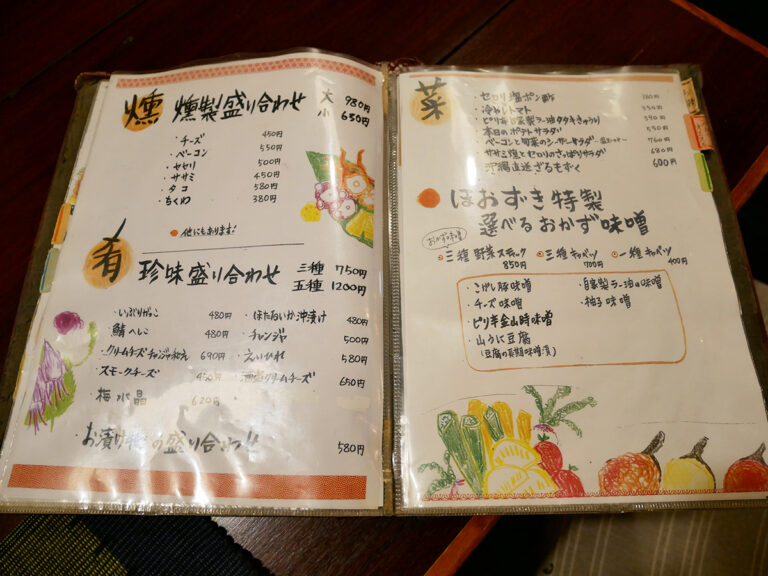 燻
燻製盛り合わせ 大 980円
小 650円
・チーズ 450円
・ベーコン 550円
・セセリ 500円
・ササミ 450円
・タコ 580円
・ちくわ 380円
他にもあります!
肴
珍味盛り合わせ 三種 750円
五種 1200円
・いぶりがっこ 480円
・鯖へしこ 480円
・クリームチーズチャンジャ和え 690円
・スモークチーズ 450円
・梅水晶 620円
・ほたるいか沖漬け 480円
・チャンジャ 500円
・えいひれ 580円
・酒盗クリームチーズ 650円
・お漬け物の盛り合わせ 580円
菜
・セロリ塩ポン酢
・冷やしトマト
・ピリ辛自家製ラー油タタキきゅうり
・本日のポテトサラダ 550円
・ベーコンと旬菜のシーザーサラダ 760円
・ササミ燻とセロリのさっぱりサラダ 680円
・沖縄直送ざるもずく 600円
ほおずき特製
選べるおかず味噌
おかず味噌
三種 野菜スティック 850円
三種 キャベツ 700円
一種 キャベツ 400円
・こがし豚味噌
・チーズ味噌
・ピリ辛金山時味噌
・山うに豆腐
(豆腐の長期味噌漬)
・自家製ラー油の味噌
・柚子味噌